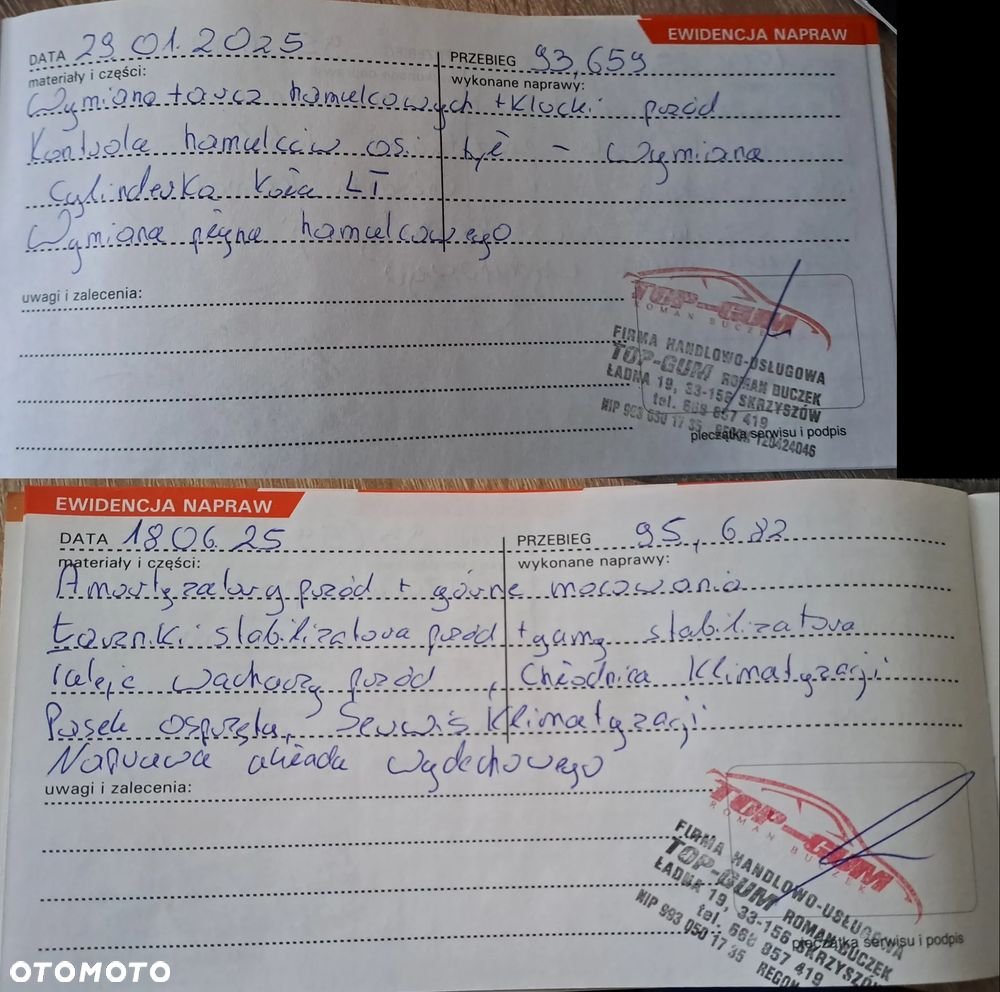 EWIDENCJA NAPRAW
DATA 29 01.2025 PRZEBIEG 93,659
materiały i części: wykonane naprawy:
Wymiana tarcz hamulcowych + Klocki przód
Kontrola hamulców osi tył - Wymiana
Cylinderka Koła LT
Wymiana płynu hamulcowego
uwagi i zalecenia:
TOP-GUM
ROMAN BUCZEK
FIRMA HANDLOWO-USŁUGOWA
TOP-GUM ROMAN BUCZEK
ŁADNA 19, 33-156 SKRZYSZÓW
tel. 668 857 419
NIP 993 050 17 35 REGON 120424046
pieczątka serwisu i podpis
EWIDENCJA NAPRAW
DATA 18 06 25 PRZEBIEG 95,682
materiały i części: wykonane naprawy:
Amortyzatory przód + górne mocowania
Łączniki stabilizatora przód + gumy stabilizatora
Tuleje wachaczy przód, Chłodnica Klimatyzacji
Pasek osprzętu, Serwis Klimatyzacji
Naprawa układu wydechowego
uwagi i zalecenia:
TOP-GUM
ROMAN BUCZEK
FIRMA HANDLOWO-USŁUGOWA
TOP-GUM ROMAN BUCZEK
ŁADNA 19, 33-156 SKRZYSZÓW
tel. 668 857 419
NIP 993 050 17 35 REGON
pieczątka serwisu i podpis
OTOMOTO